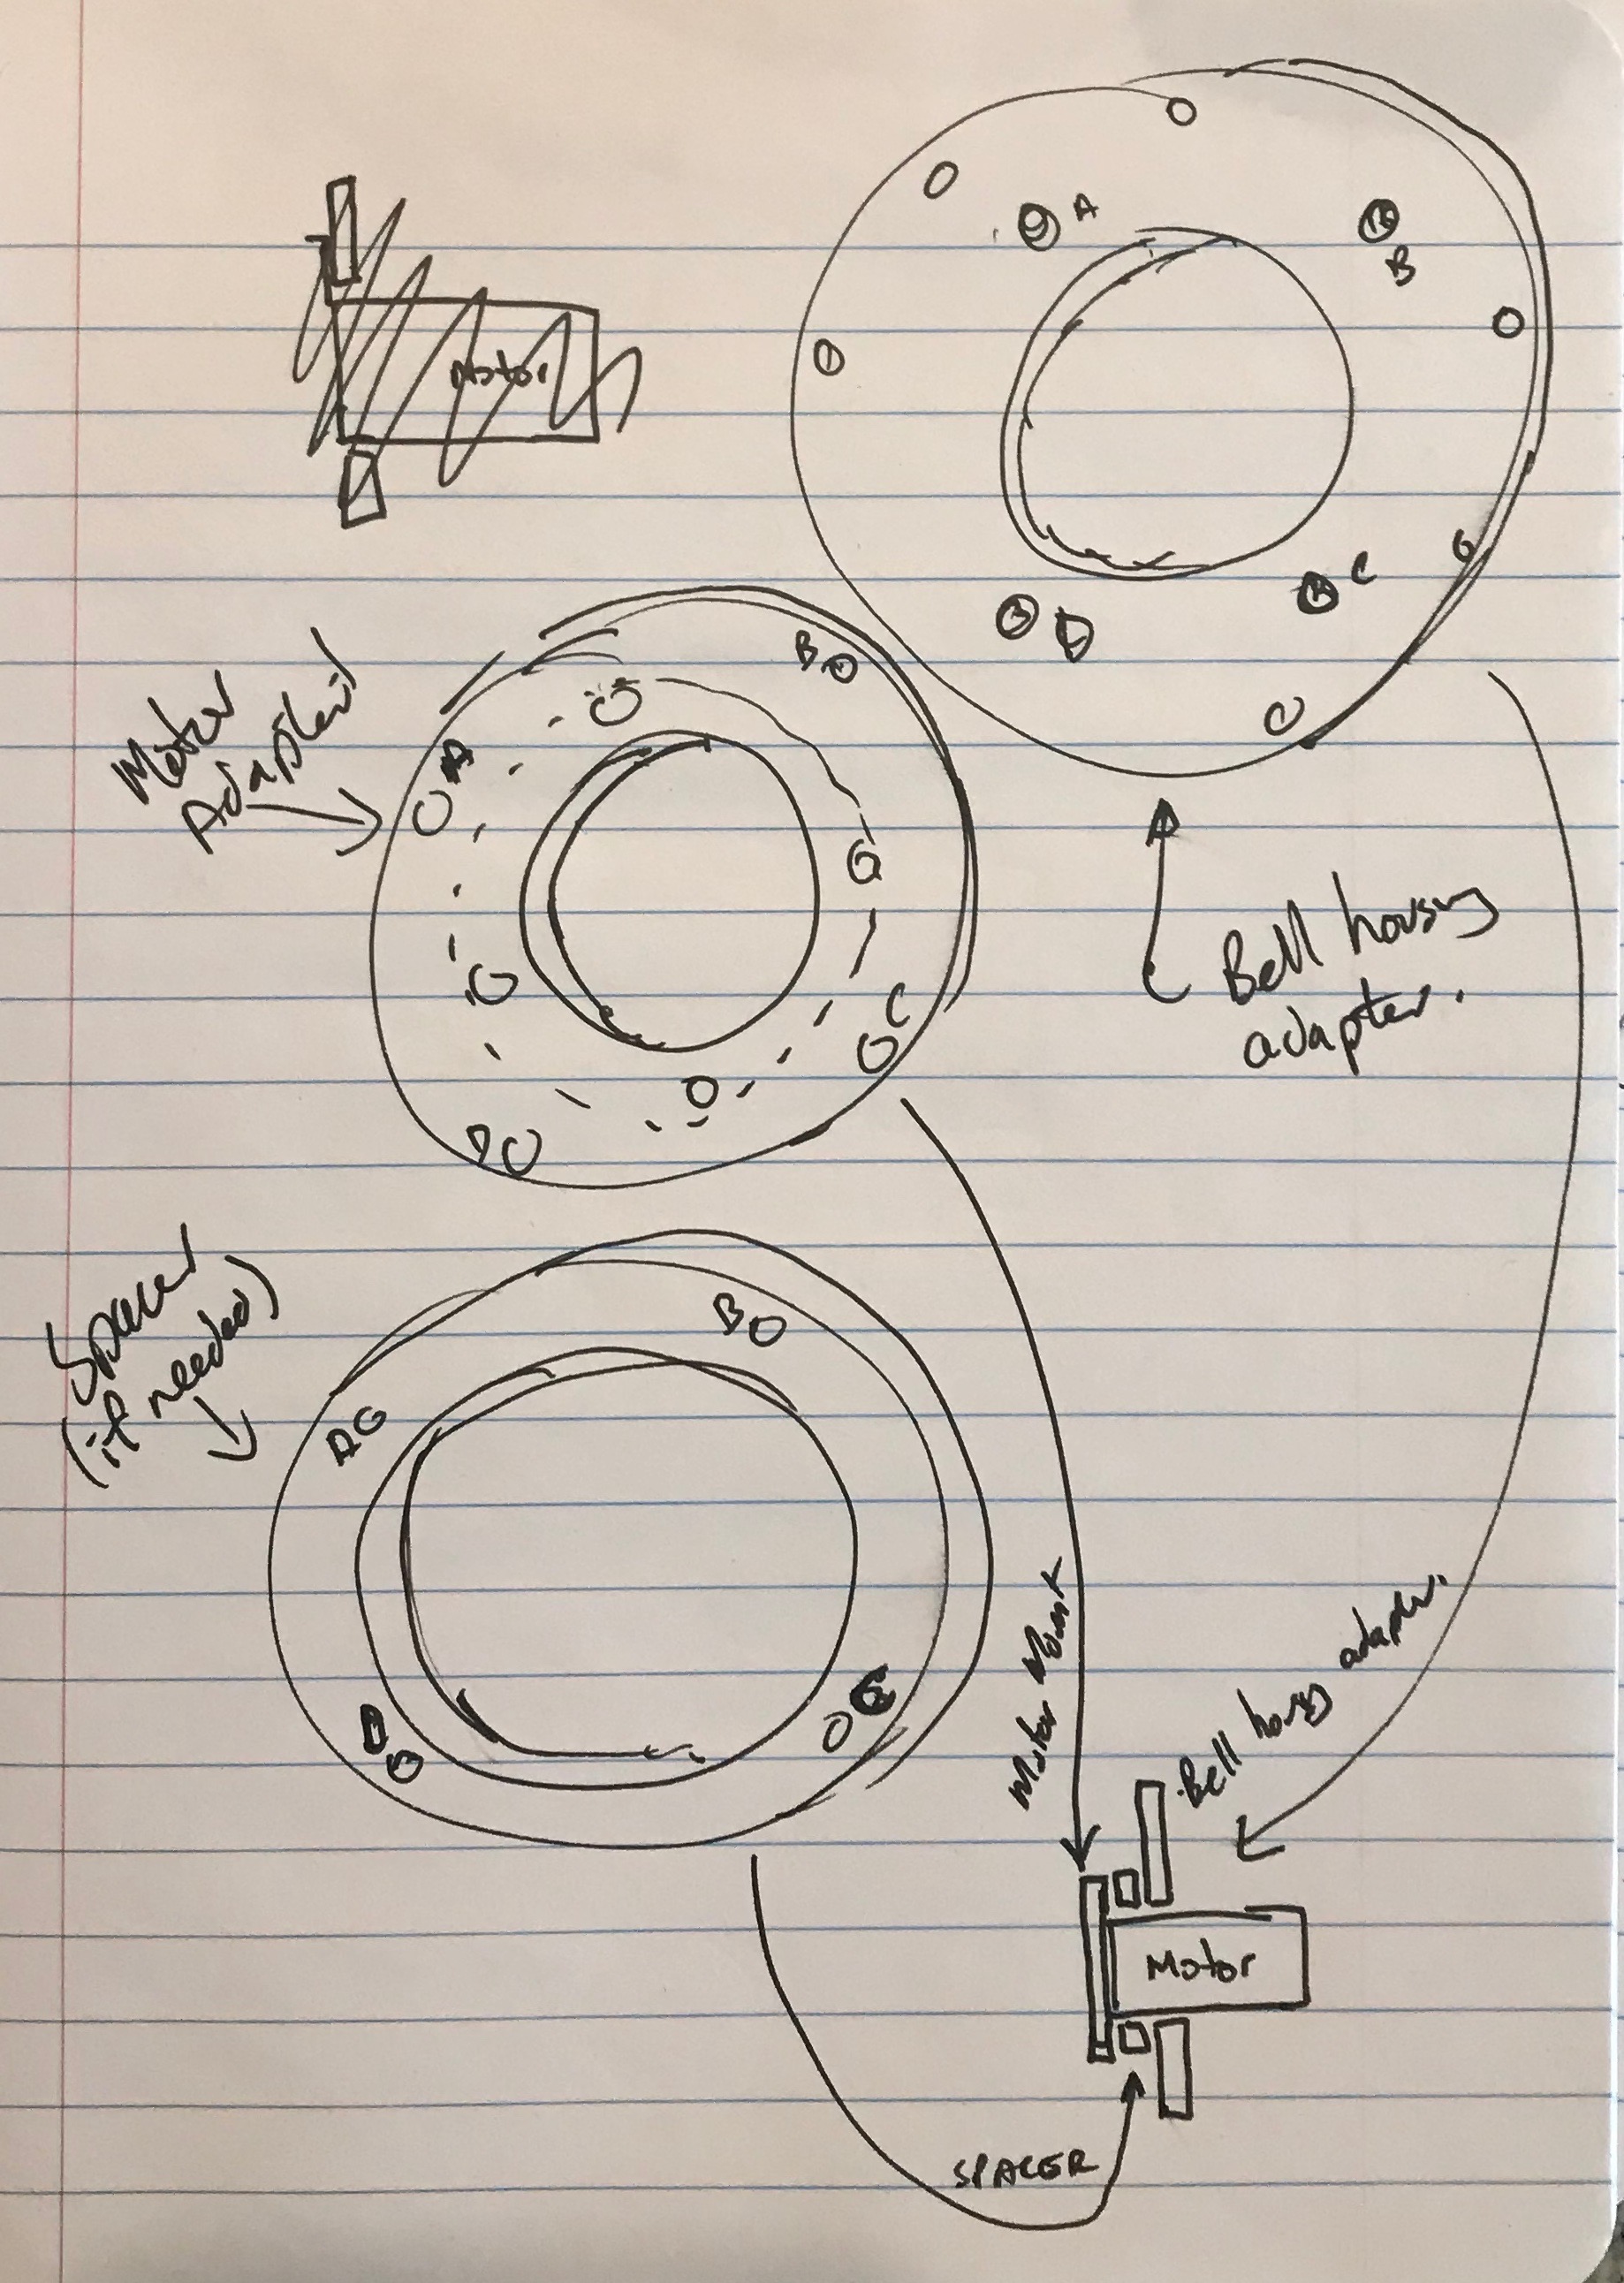 A
B
Motor
C
D
B
Motor
Adapter
A
Bell housing
adapter.
C
D
Spacer
(if needed)
B
A
Motor Mount
Bell housg adapter.
C
D
Motor
SPACER